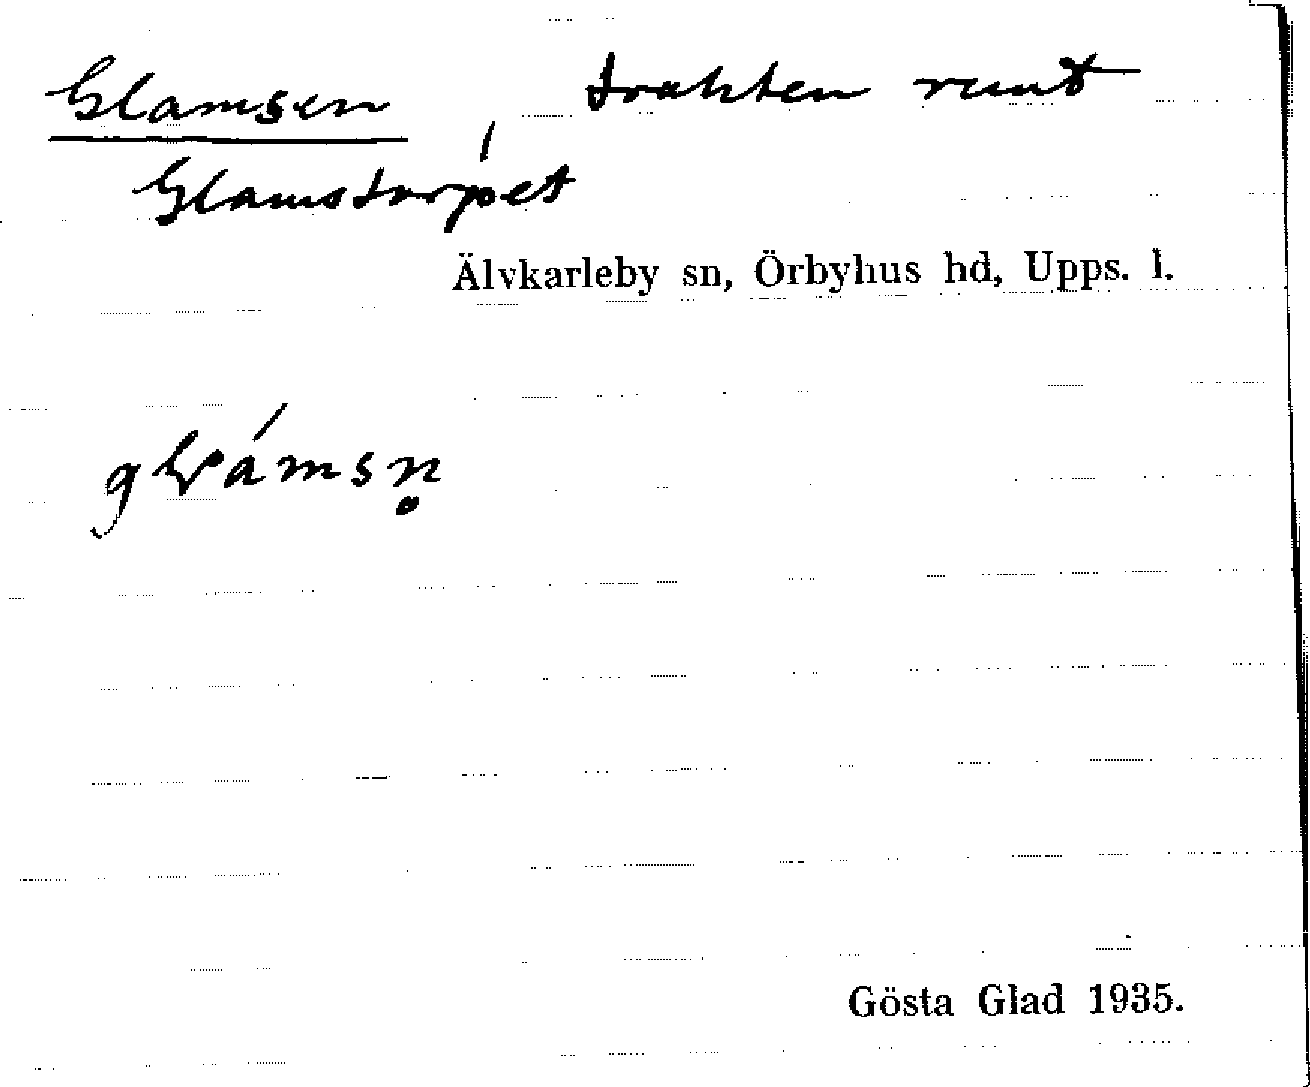 Glamsen, trakten runt
Glamstorpet
Älvkarleby sn, Örbyhus hd, Upps. l.
glámsn̥
Gösta Glad 1935.